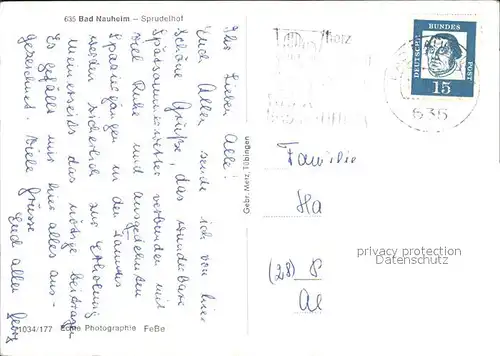 635 Bad Nauheim – Sprudelhof
Ihr Lieben Alle!
Euch Allen sende ich von hier
schöne Grüße, das wunderbare
Spätsommerwetter verbunden mit
viel Ruhe und ausgedehnten
Spaziergängen in den
werden sicherlich zur Erholung
meinerseits das nötige beitragen
Es gefällt mir hier alles aus-
gezeichnet. Viele Grüsse
Euch allen
1034/177 Echte Photographie FeBe
Gebr. Metz, Tübingen
Herz
DEUTSCHE BUNDES POST
15
635
Familie
Ha
(28)
privacy protection
Datenschutz